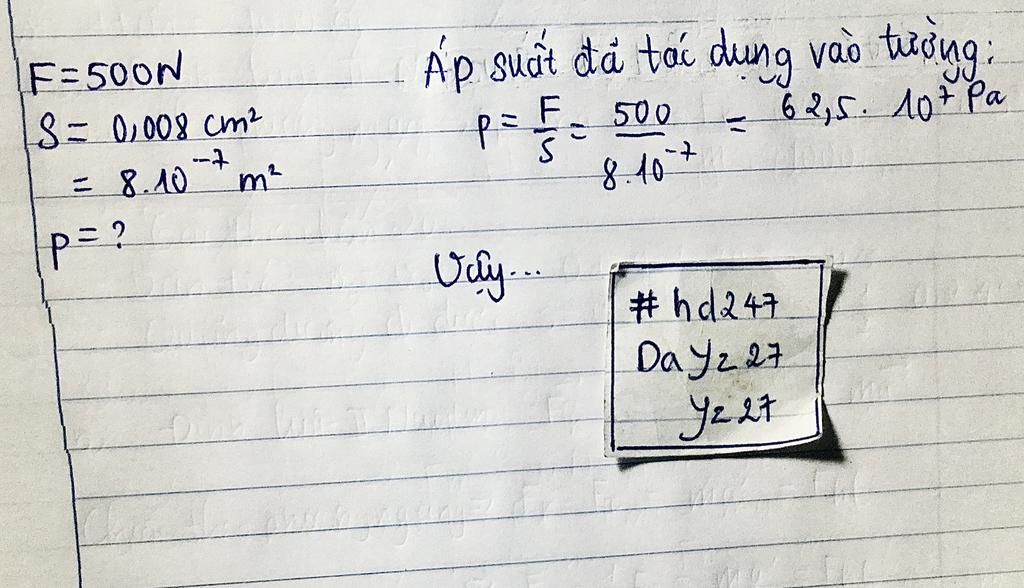 F = 500N
S = 0,008 cm²
= 8.10⁻⁷ m²
p = ?
Áp suất đã tác dụng vào tường:
p = F/S = 500/8.10⁻⁷ = 62,5. 10⁷ Pa
Vậy...
# hd247
Da Yz 27
Yz 27